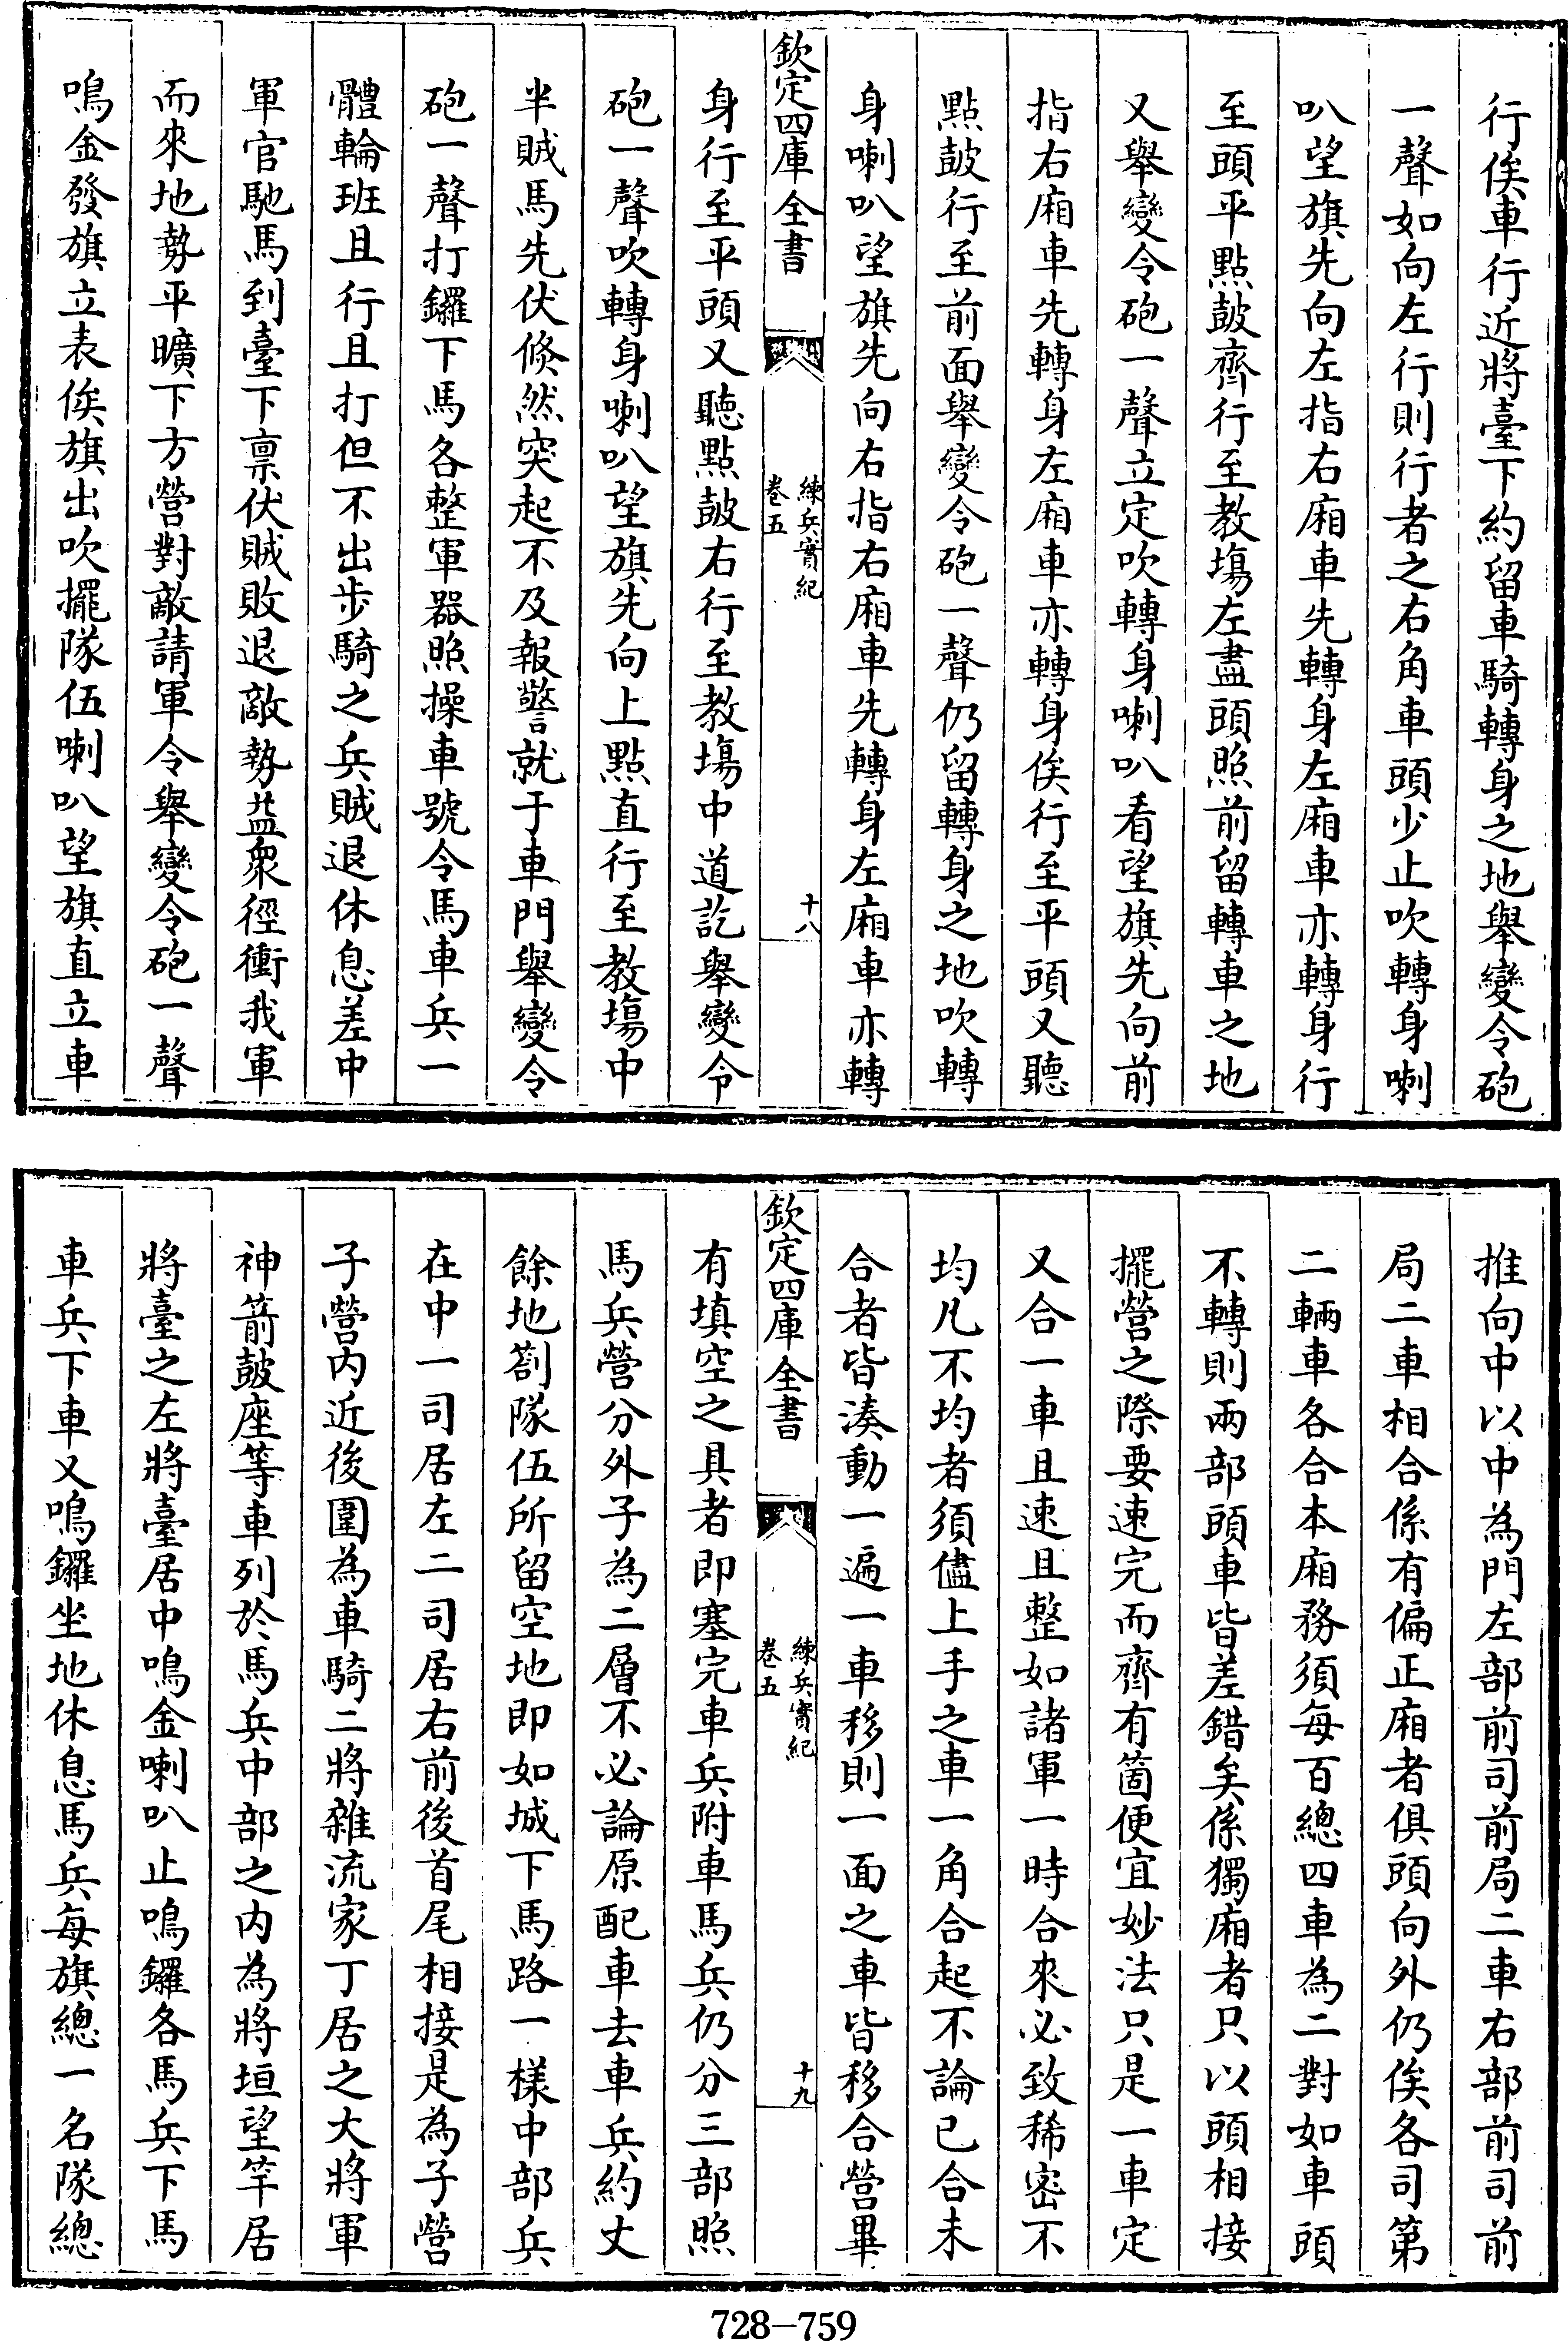 行俟車行近將臺下約留車騎轉身之地舉變令砲
一聲如向左行則行者之右角車頭少止吹轉身喇
叭望旗先向左指右廂車先轉身左廂車亦轉身行
至頭平點鼓齊行至教塲左盡頭照前留轉車之地
又舉變令砲一聲立定吹轉身喇叭看望旗先向前
指右廂車先轉身左廂車亦轉身俟行至平頭又聽
點鼓行至前面舉變令砲一聲仍留轉身之地吹轉
身喇叭望旗先向右指右廂車先轉身左廂車亦轉
欽定四庫全書
練兵實紀
卷五
十八
身行至平頭又聽點鼓右行至教塲中道訖舉變令
砲一聲吹轉身喇叭望旗先向上點直行至教塲中
半賊馬先伏倐然突起不及報警就于車門舉變令
砲一聲打鑼下馬各整軍器照操車號令馬車兵一
體輪班且行且打但不出步騎之兵賊退休息差中
軍官馳馬到臺下禀伏賊敗退敵勢益衆徑衝我軍
而來地勢平曠下方營對敵請軍令舉變令砲一聲
鳴金發旗立表俟旗出吹擺隊伍喇叭望旗直立車
推向中以中為門左部前司前局二車右部前司前
局二車相合係有偏正廂者俱頭向外仍俟各司第
二輛車各合本廂務須每百總四車為二對如車頭
不轉則兩部頭車皆差錯矣係獨廂者只以頭相接
擺營之際要速完而齊有箇便宜妙法只是一車定
又合一車且速且整如諸軍一時合來必致稀密不
均凡不均者須儘上手之車一角合起不論已合未
合者皆湊動一遍一車移則一面之車皆移合營畢
欽定四庫全書
練兵實紀
卷五
十九
有填空之具者即塞完車兵附車馬兵仍分三部照
馬兵營分外子為二層不必論原配車去車兵約丈
餘地劄隊伍所留空地即如城下馬路一樣中部兵
在中一司居左二司居右前後首尾相接是為子營
子營内近後圍為車騎二將雜流家丁居之大將軍
神箭鼓座等車列於馬兵中部之内為將垣望竿居
將臺之左將臺居中鳴金喇叭止鳴鑼各馬兵下馬
車兵下車又鳴鑼坐地休息馬兵每旗總一名隊總
728—759